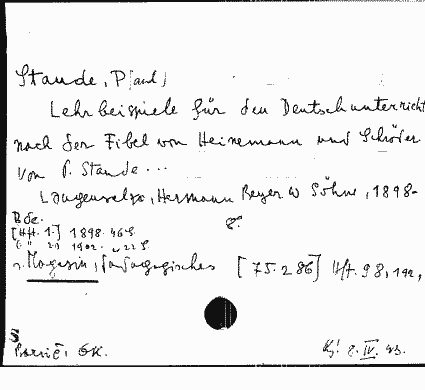 Staude, P[aul]
Lehrbeispiele für den Deutschunterricht
nach der Fibel von Heinemann und Schröder
Von P. Staude ...
Langensalza, Hermann Beyer u Söhne, 1898-
Bde. 8°.
[Hft. 1.] 1898. 46 S.
2.) 1902. 22 S
Magazin, Pädagogisches [75.286] Hft. 98, 192,
S
IV. 43.